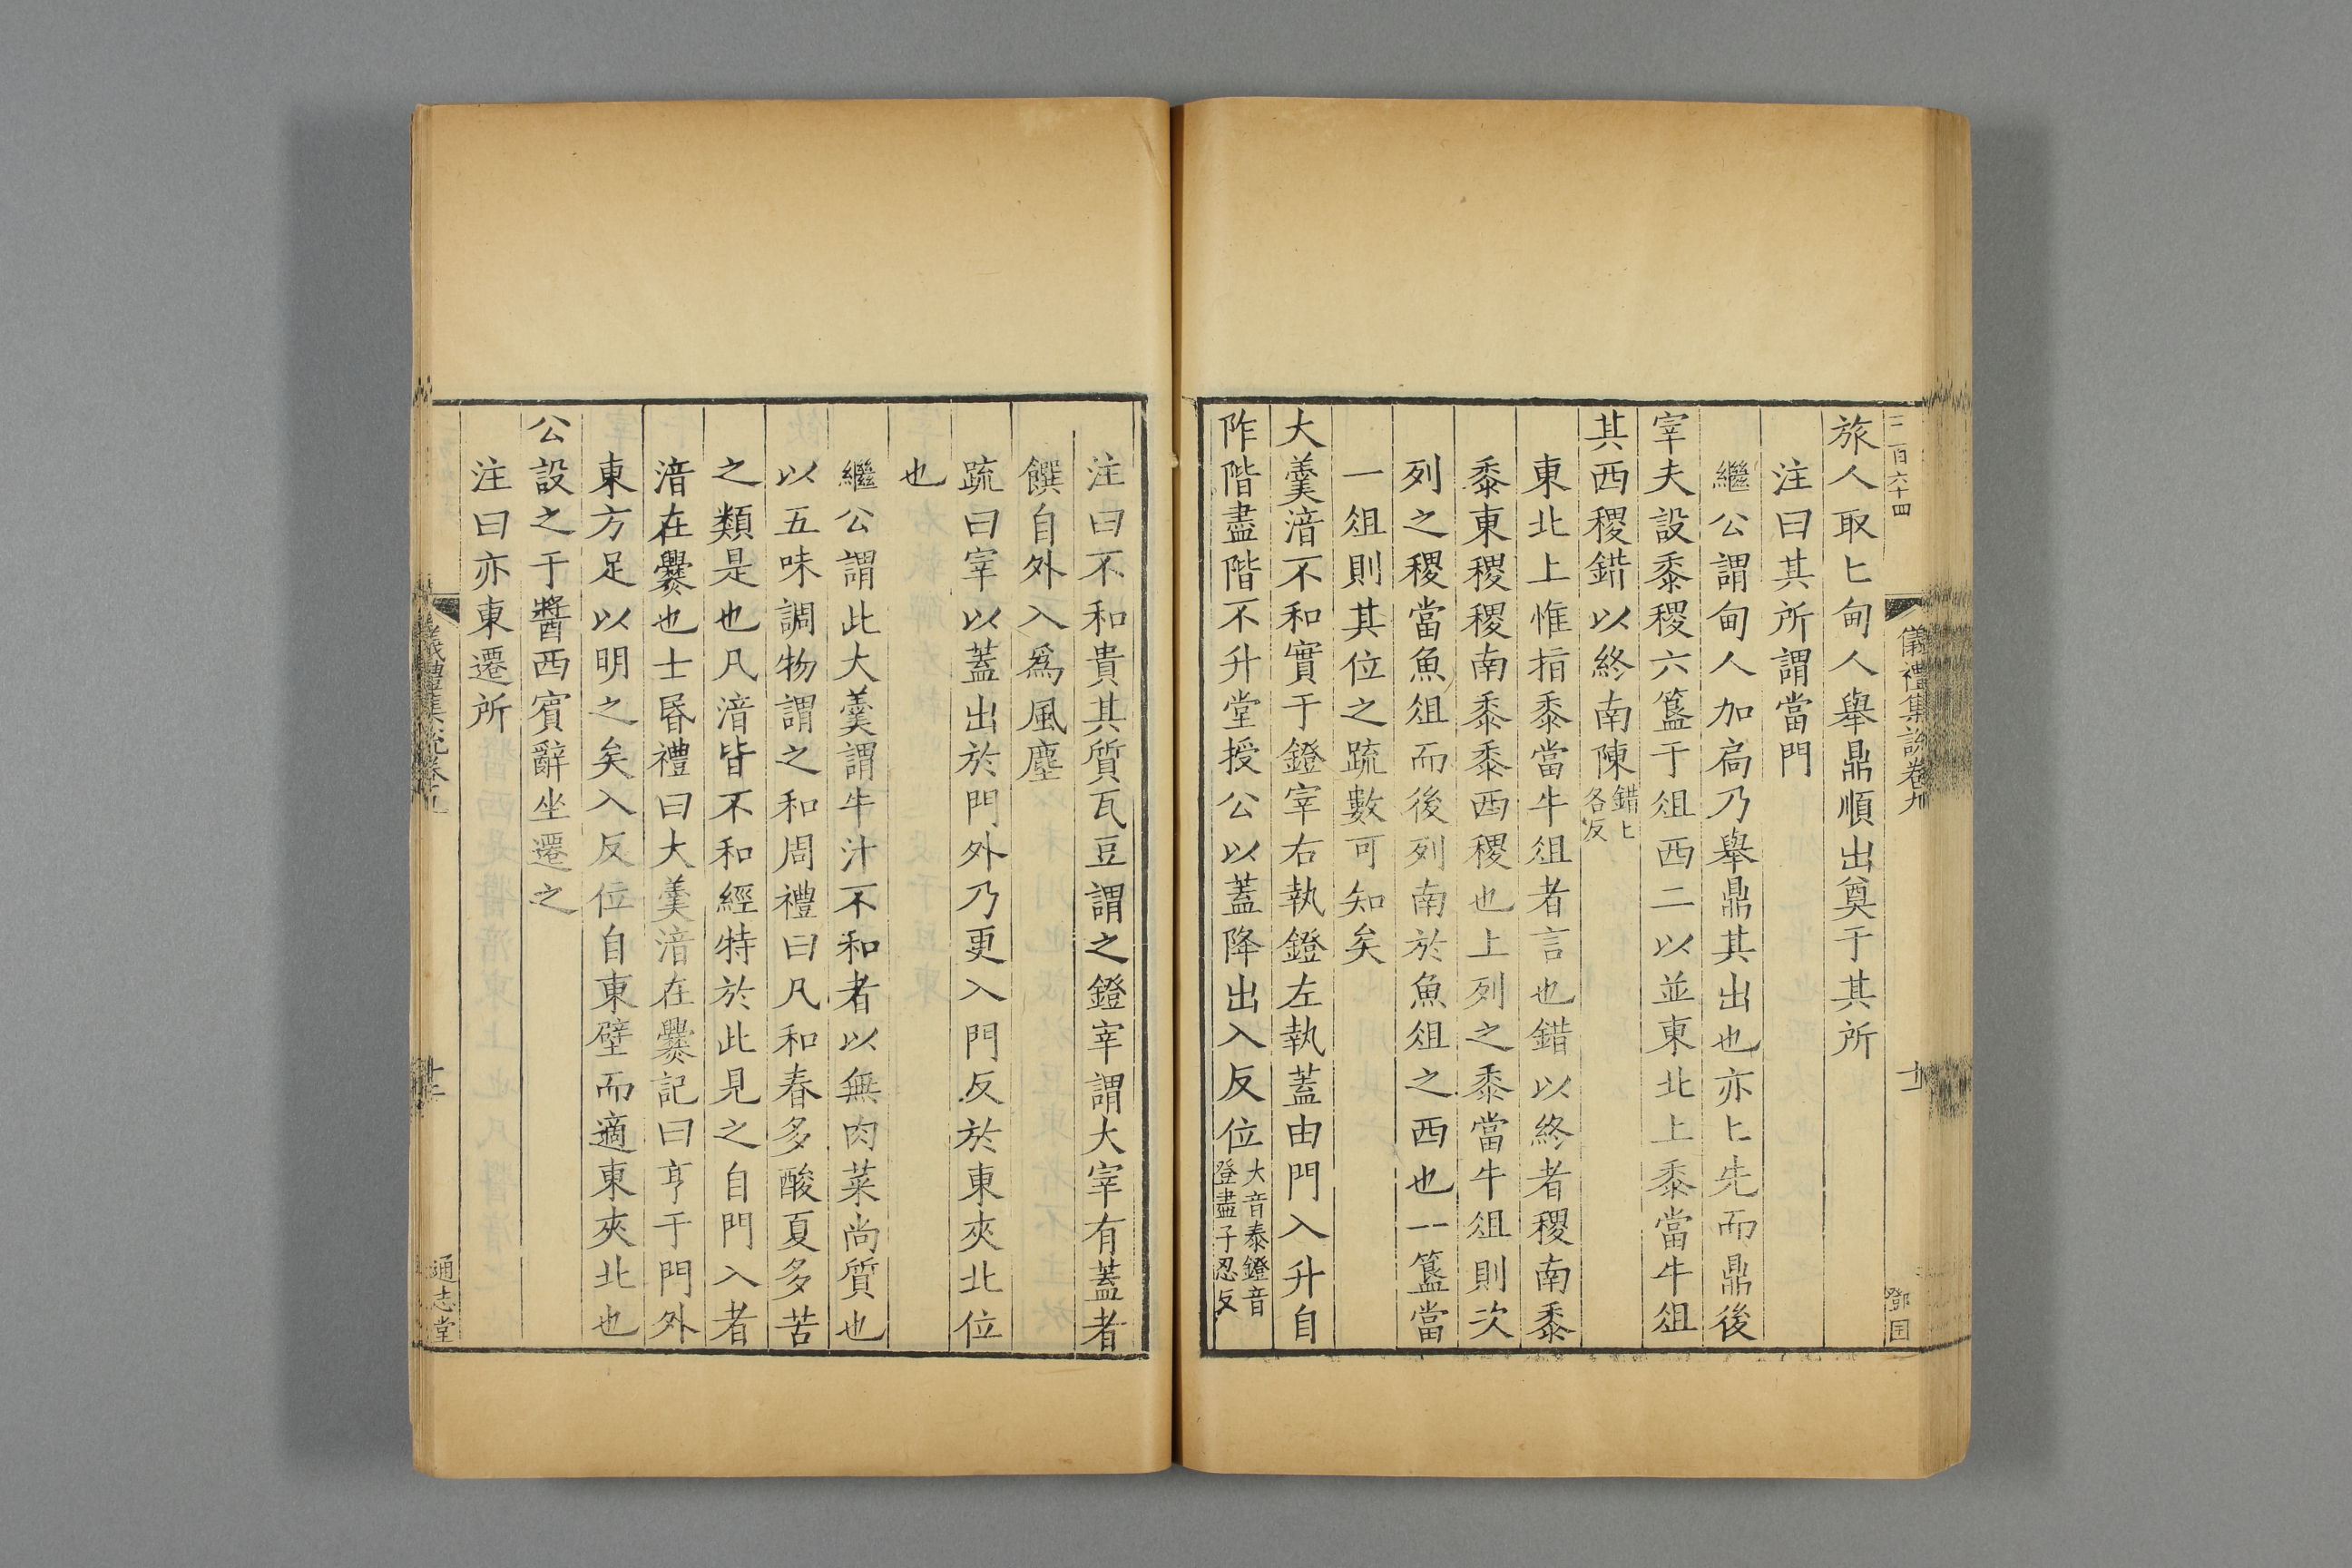 三百六十四
儀禮集說卷九
十一
鄧囯
旅人取匕甸人舉鼎順出奠于其所
注曰其所謂當門
繼公謂甸人加扃乃舉鼎其出也亦匕先而鼎後
宰夫設黍稷六簋于俎西二以並東北上黍當牛俎
其西稷錯以終南陳錯七各反
東北上惟指黍當牛俎者言也錯以終者稷南黍
黍東稷稷南黍黍西稷也上列之黍當牛俎則次
列之稷當魚俎而後列南於魚俎之西也一簋當
一俎則其位之疏數可知矣
大羹湆不和實于鐙宰右執鐙左執蓋由門入升自
阼階盡階不升堂授公以蓋降出入反位大音泰鐙音登盡子忍反
注曰不和貴其質瓦豆謂之鐙宰謂大宰有蓋者
饌自外入爲風塵
疏曰宰以蓋出於門外乃更入門反於東夾北位
也
繼公謂此大羹謂牛汁不和者以無肉菜尚質也
以五味調物謂之和周禮曰凡和春多酸夏多苦
之類是也凡湆皆不和經特於此見之自門入者
湆在爨也士昏禮曰大羹湆在爨記曰亨于門外
東方足以明之矣入反位自東壁而適東夾北也
公設之于醬西賓辭坐遷之
注曰亦東遷所
儀禮集說卷
通志堂